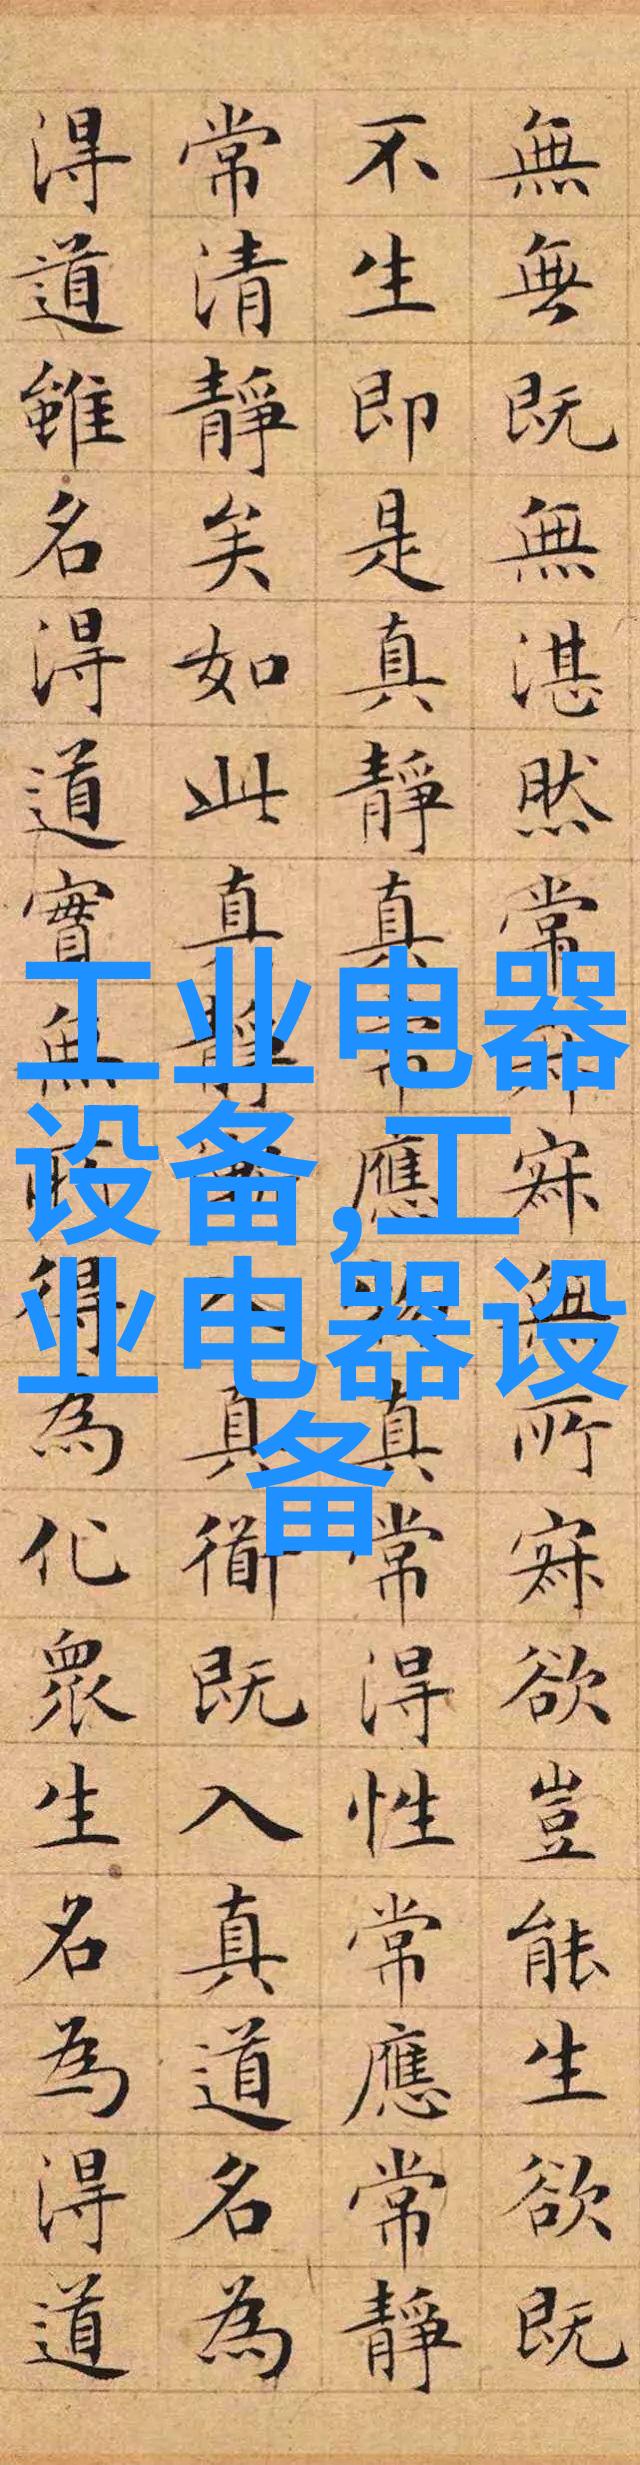 無無既無湛然常寂寂無所寂欲豈能生欲既
不生即是真靜真常應物真常得性常應常靜
常清靜矣如此真靜漸入真衜既入真道名為
得道雖名得道實無所得為化眾生名為得道
工业电器
设备,工
业电器设
备